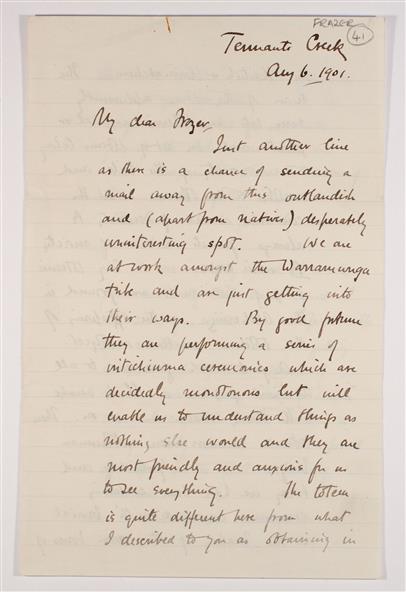 FRAZER
41
Tennants Creek
Aug 6. 1901.
My dear Frazer,
Just another line
as there is a chance of sending a
mail away from this outlandish
and (apart from natives) desperately
uninteresting spot. We are
at work amongst the Warramunga
tribe and are just getting into
their ways. By good fortune
they are performing a series of
intichiuma ceremonies which are
decidedly monotonous but will
enable us to understand things as
nothing else would and they are
most friendly and anxious for us
to see everything. The totem
is quite different here from what
I described to you as obtaining in